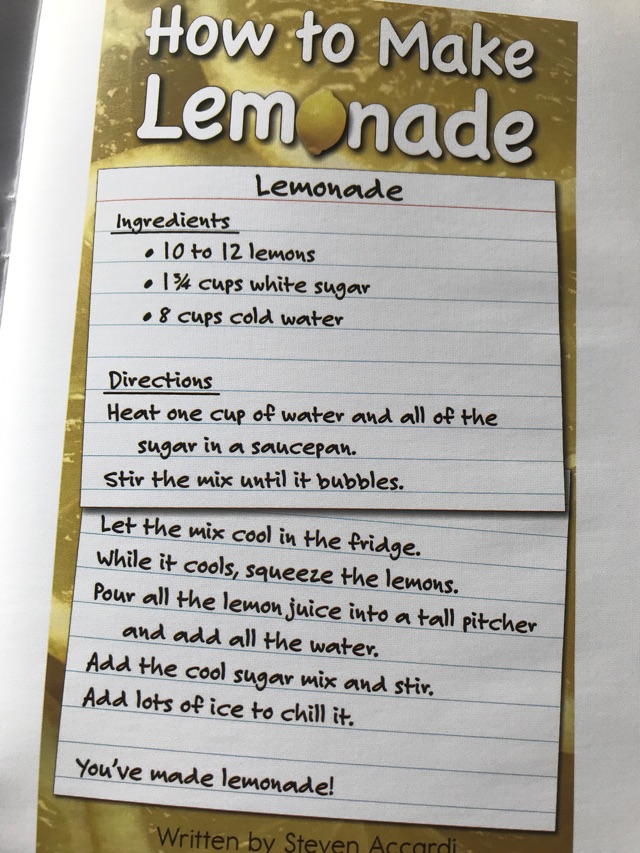 How to Make
Lemonade
Lemonade
Ingredients
• 10 to 12 lemons
• 1 3/4 cups white sugar
• 8 cups cold water
Directions
Heat one cup of water and all of the
sugar in a saucepan.
Stir the mix until it bubbles.
Let the mix cool in the fridge.
While it cools, squeeze the lemons.
Pour all the lemon juice into a tall pitcher
and add all the water.
Add the cool sugar mix and stir.
Add lots of ice to chill it.
You've made lemonade!
Written by Steven Accardi